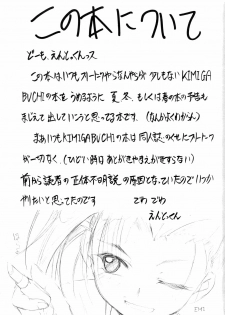 この本について
どーも、えんどっくんっス
この本はいつもフリートークやらなんやらが少しもないKIMIGA
BUCHIの本をうめるように夏、冬、もしくは春の本の予告も
まじえて出していこうと思ってる本です。(なんかよくわかんn)
まあいつもKIMIGABUCHIの本は同人誌のくせにフリートークが
一切なく、(ひどい時はあとがきやまえがきすらない)
前から読者の正体不明説の原因となっていたのでいつか
やりたいと思ってたのです でわ でわ